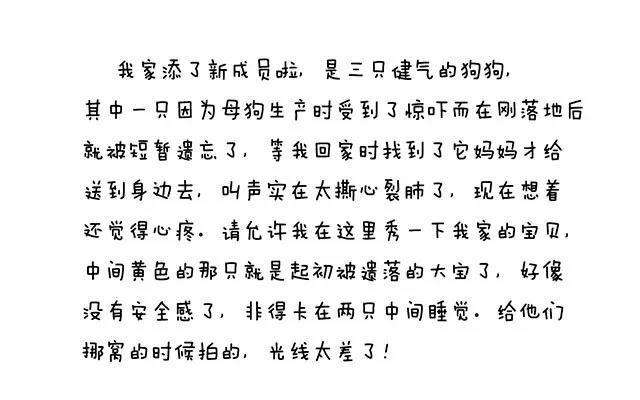 我家添了新成员啦，是三只健气的狗狗，
其中一只因为母狗生产时受到了惊吓而在刚落地后
就被短暂遗忘了，等我回家时找到了它妈妈才给
送到身边去，叫声实在太撕心裂肺了，现在想着
还觉得心疼。请允许我在这里秀一下我家的宝贝，
中间黄色的那只就是起初被遗落的大宝了，好像
没有安全感了，非得卡在两只中间睡觉。给他们
挪窝的时候拍的，光线太差了！